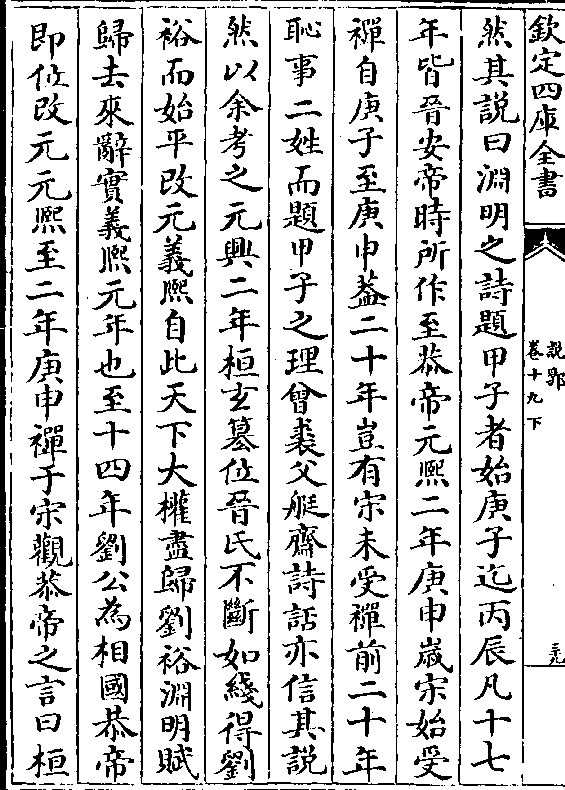 欽定四庫全書
說郛
卷十九下
三九
然其說曰淵明之詩題甲子者始庚子迄丙辰凡十七
年皆晉安帝時所作至恭帝元熙二年庚申嵗宋始受
禪自庚子至庚申葢二十年豈有宋未受禪前二十年
恥事二姓而題甲子之理曾裘父艇齋詩話亦信其說
然以余考之元興二年桓玄簒位晉氏不斷如綫得劉
裕而始平改元義熙自此天下大權盡歸劉裕淵明賦
歸去來辭實義熙元年也至十四年劉公為相國恭帝
即位改元元熙至二年庚申禪于宋觀恭帝之言曰桓